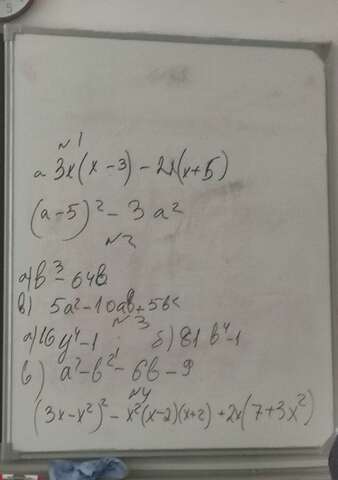 N1
a 3x(x-3) - 2x(x+5)
(a-5)² - 3a²
N2
a) b³ - 64b
в) 5a² - 10ab + 5b²
N3
a) 16y⁴ - 1 б) 81b⁴ - 1
в) a² - b² - 6b - 9
N4
(3x - x²)² - x²(x-2)(x+2) + 2x(7 + 3x²)